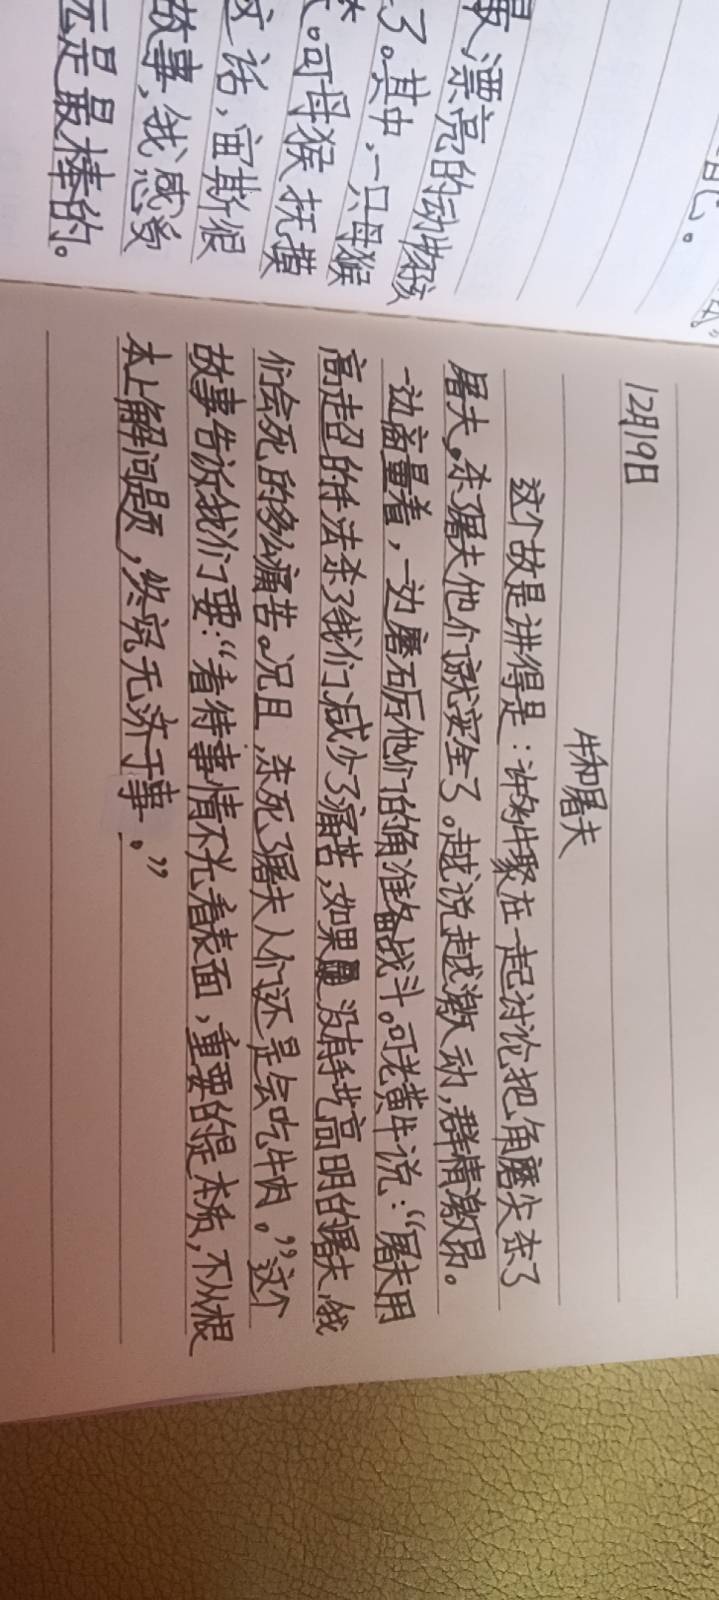 最漂亮的动物孩
了。其中,一只母猴
。可母猴抚摸
这话,宙斯很
故事,我感受
远是最棒的。
自己。
12月19日
牛和屠夫
这个故是讲得是:许多牛聚在一起讨论把角磨尖杀了
屠夫。杀了屠夫他们就安全了。越说越激动,群情激昂。
一边商量着,一边磨砺他们的角准备战斗。可老黄牛说:“屠夫用
高超的手法杀了我们减少了痛苦,如果是没有手艺高明的屠夫,我
们会死的多么痛苦。况且,杀死了屠夫人们还是会吃牛肉。”这个
故事告诉我们要:“看待事情不光看表面,重要的是本质,不从根
本上解问题,终究无济于事。”